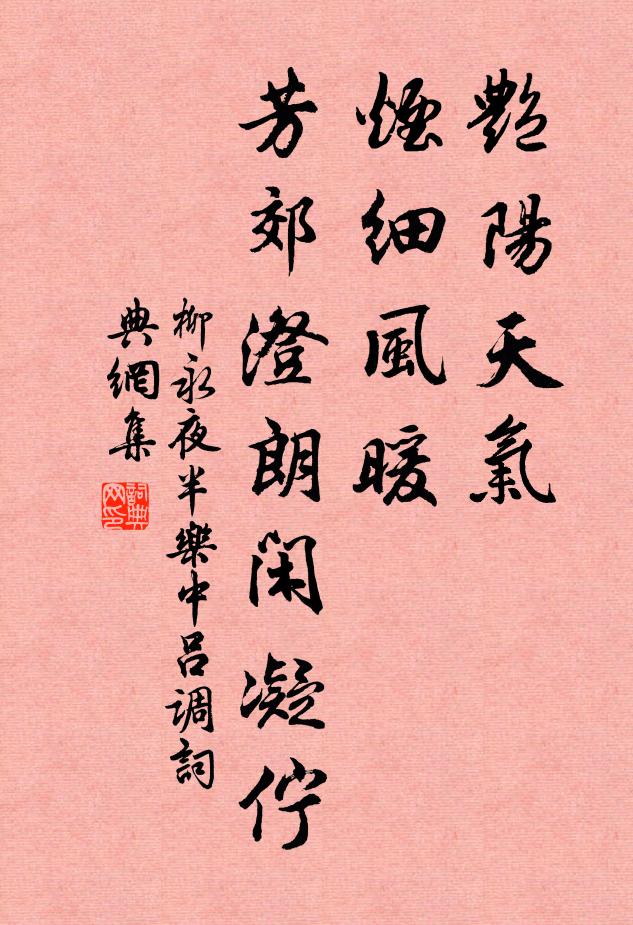 艷陽天氣
煙細風暖
芳郊澄朗閑凝佇
柳永夜半樂中呂调詞
典網集
詞典網印